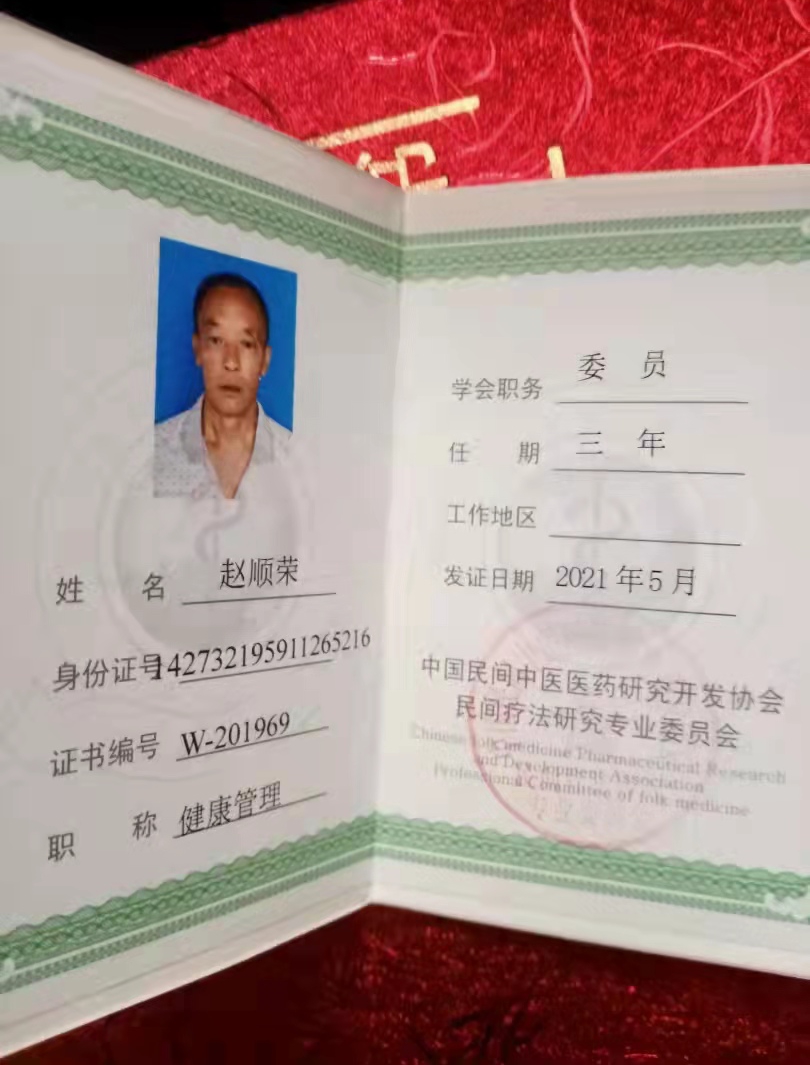 姓 名 赵顺荣
身份证号142732195911265216
证书编号 W-201969
职 称 健康管理
学会职务 委 员
任 期 三 年
工作地区
发证日期 2021年5月
中国民间中医医药研究开发协会
民间疗法研究专业委员会
Chinese folk medicine Pharmaceutical Research
and Development Association
Professional Committee of folk medicine